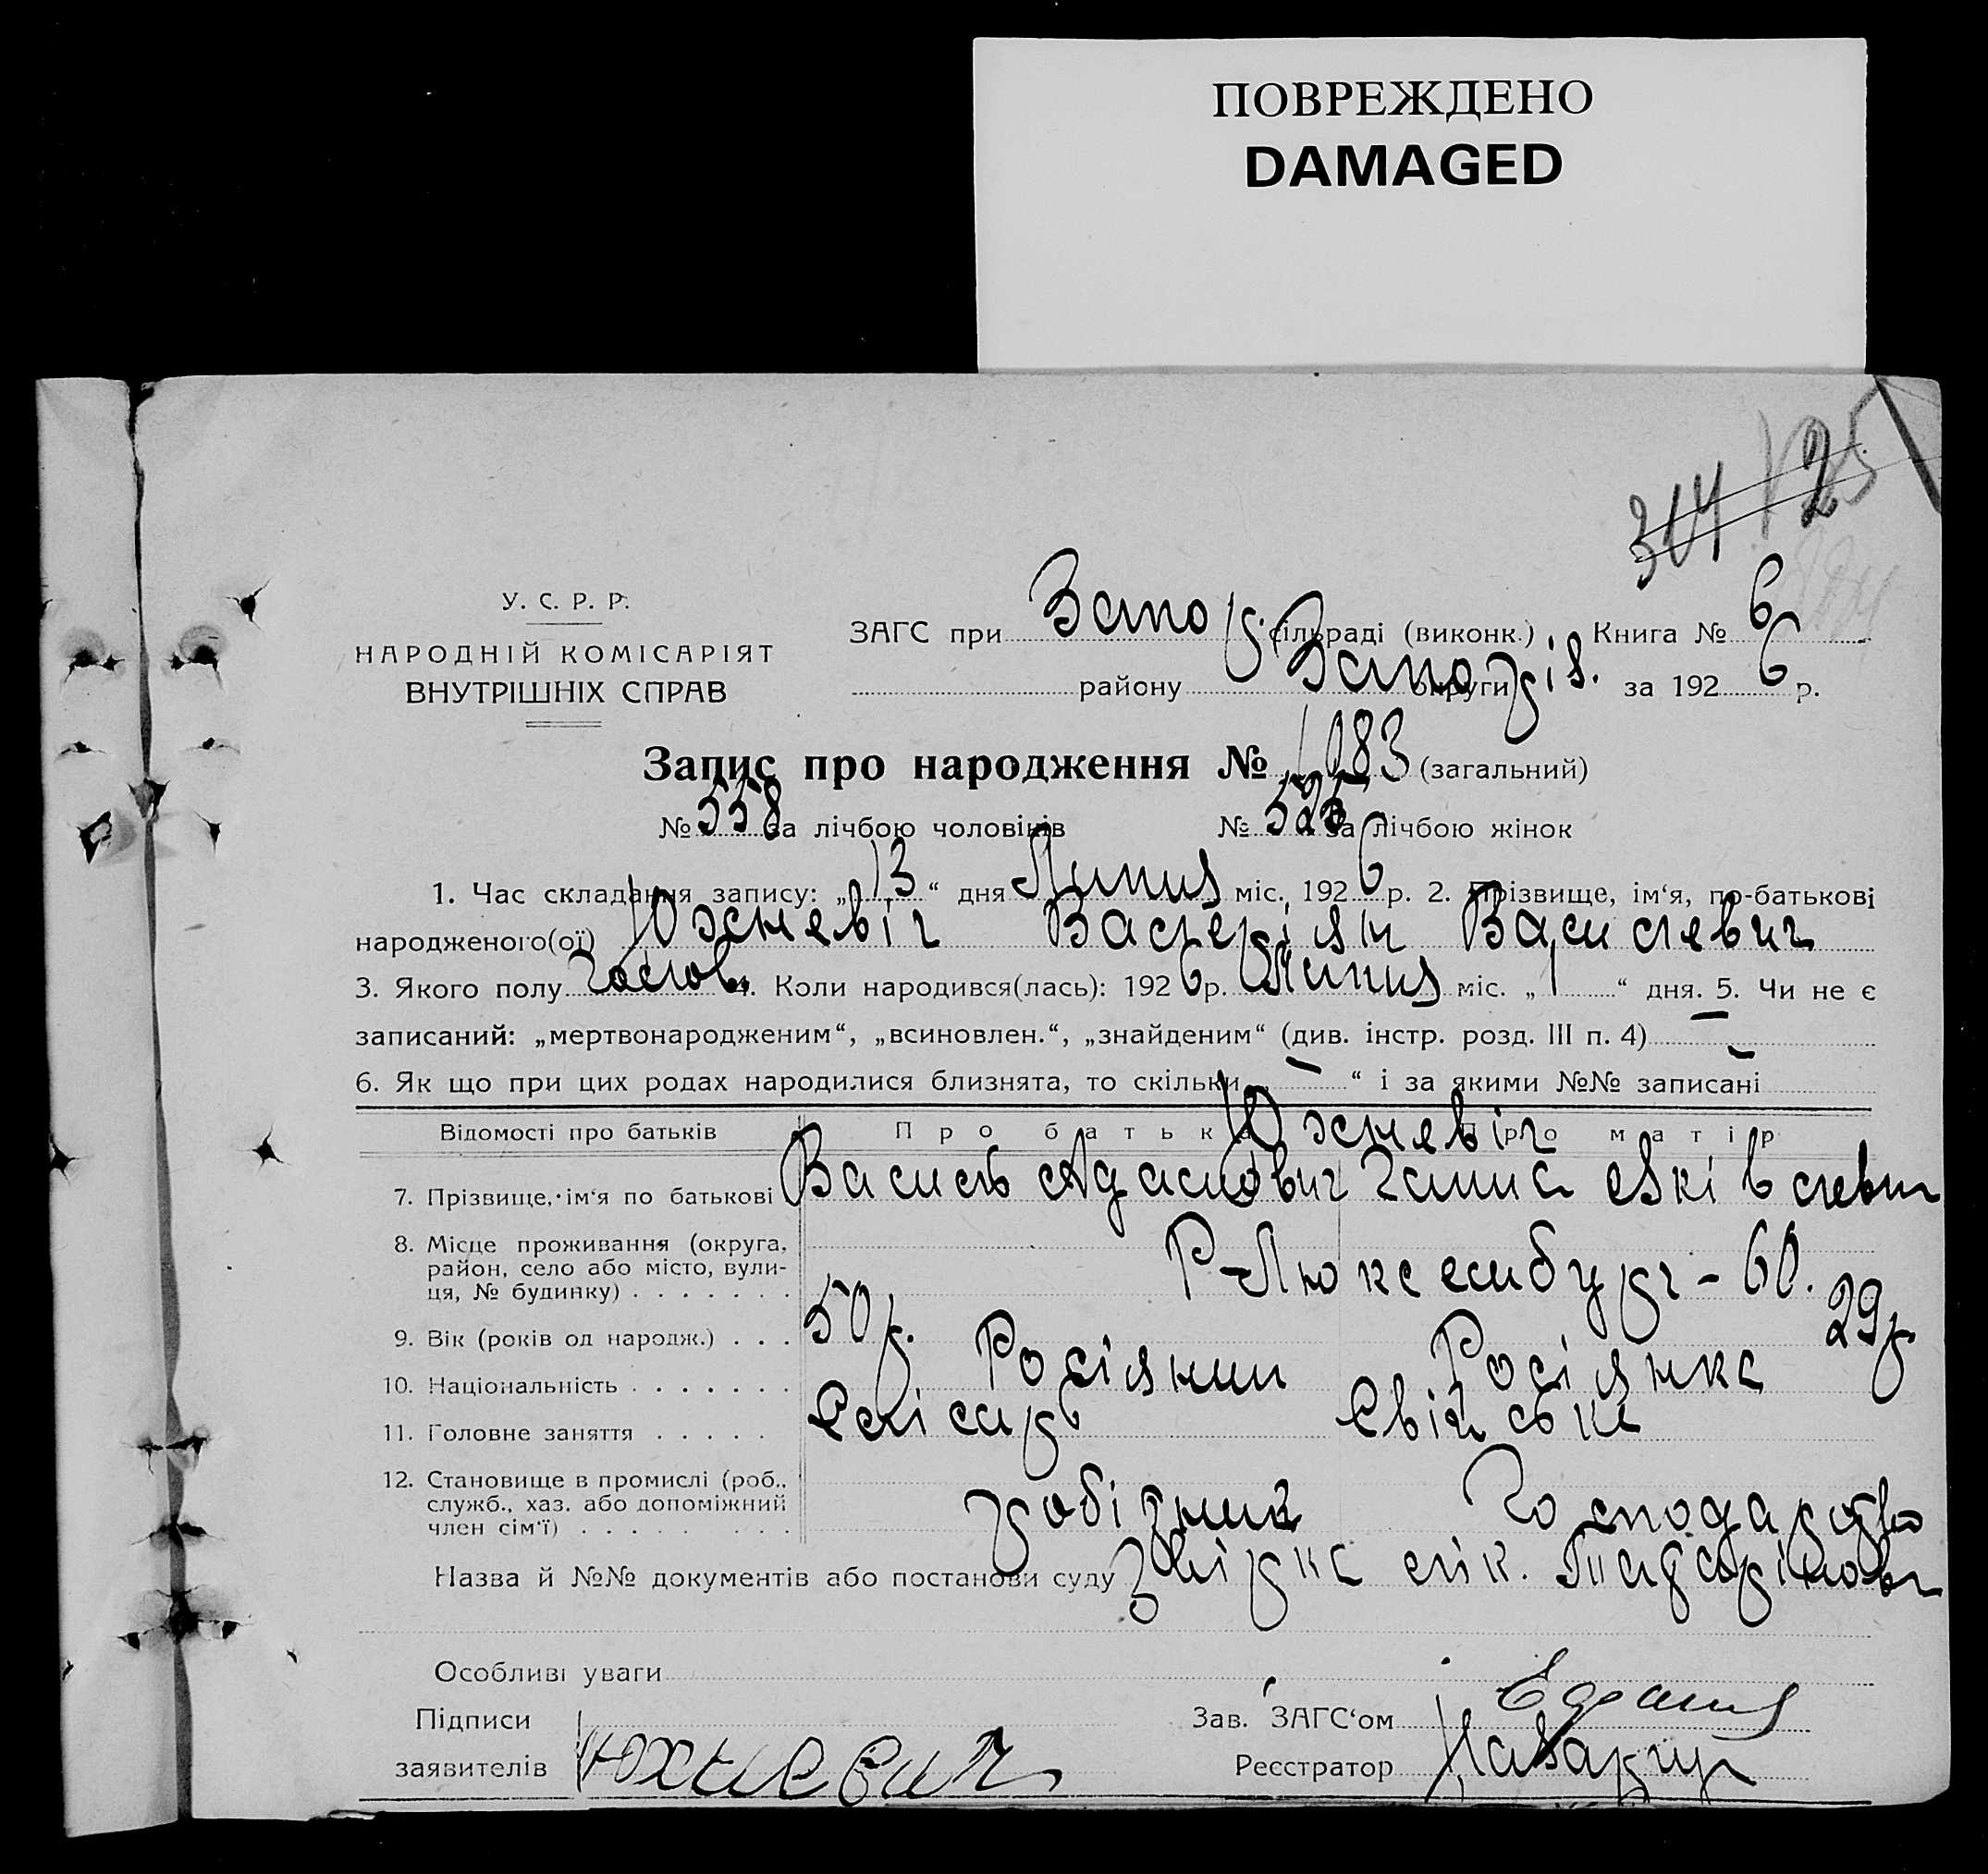 ПОВРЕЖДЕНО
DAMAGED
314 125
У. С. Р. Р.
НАРОДНІЙ КОМІСАРІЯТ
ВНУТРІШНІХ СПРАВ
ЗАГС при Запор. сільраді (виконк.) Книга № 6
району Запоріз. округи за 1926 р.
Запис про народження № 1083 (загальний)
№ 558 за лічбою чоловіків № 525 за лічбою жінок
1. Час складання запису: „13“ дня Липня міс. 1926 р. 2. Прізвище, ім‘я, по-батькові
народженого(ої) Юхневіч Валеріян Василевич
3. Якого полу чолов. 4. Коли народився(лась): 1926 р. Липня міс. „1“ дня. 5. Чи не є
записаний: „мертвонародженим“, „всиновлен.“, „знайденим“ (див. інстр. розд. III п. 4) —
6. Як що при цих родах народилися близнята, то скільки „—“ і за якими №№ записані —
Відомості про батьків Про батька Про матір
Юхневіч
7. Прізвище, ім‘я по батькові Василь Адамович Ганна
8. Місце проживання (округа,
район, село або місто, вули-
ця, № будинку) Р-Люксембург - 60.
9. Вік (років од народж.) 50 р. 29 р.
10. Національність Росіянин Росіянка
11. Головне заняття Слісарь Свійське
12. Становище в промислі (роб.,
служб., хаз. або допоміжний
член сім‘ї) робітник Господарство
Назва й №№ документів або постанови суду лік.
Особливі уваги
Підписи
заявителів Юхневич
Зав. ЗАГС‘ом
Реєстратор